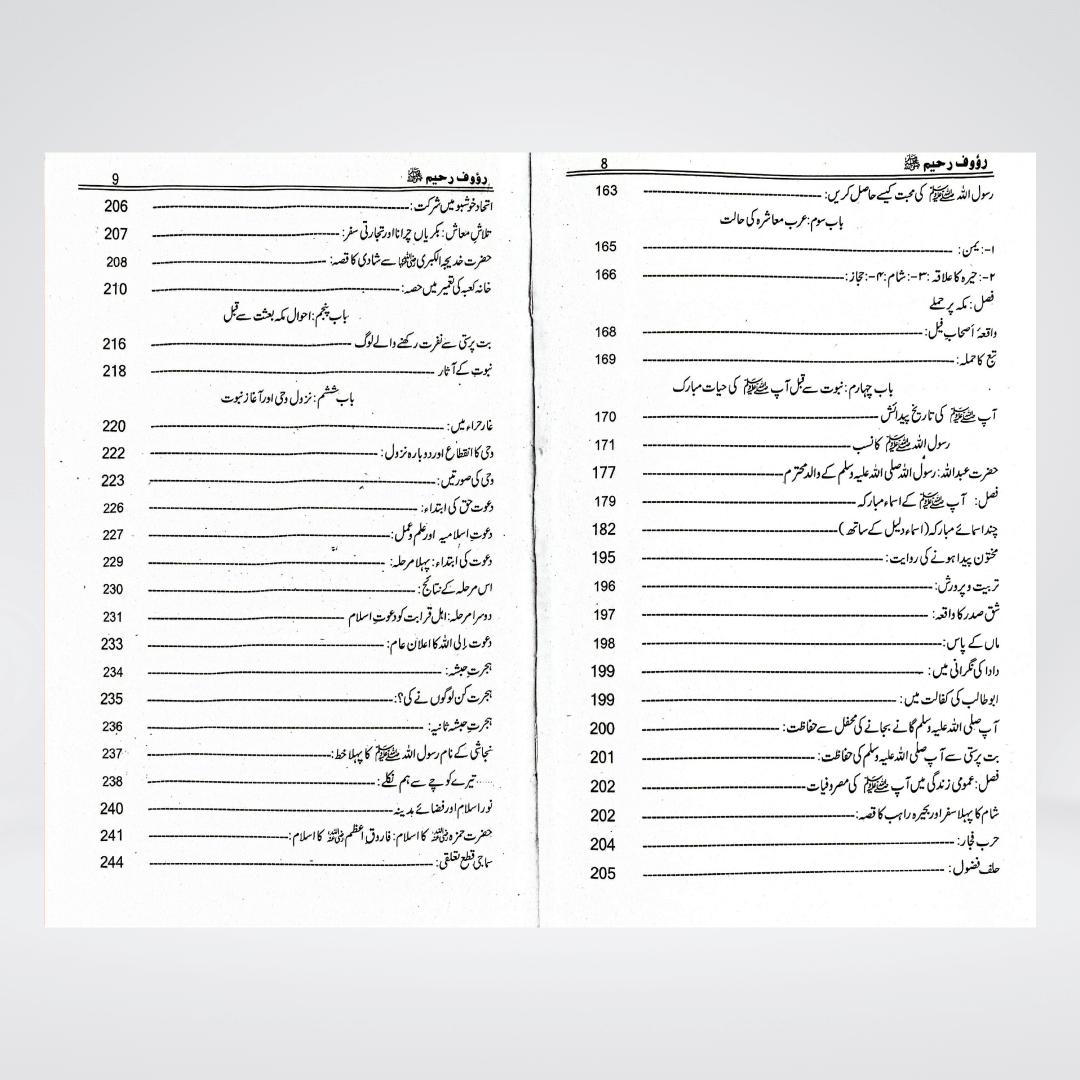 رؤوف رحیم ﷺ 8
رسول اللہ ﷺ کی محبت کیسے حاصل کریں: 163
باب سوم: عرب معاشرہ کی حالت
۱-: یمن: 165
۲-: حیرہ کا علاقہ: ۳-: شام: ۴-: حجاز: 166
فصل: مکہ پر حملے
واقعۂ اصحابِ فیل: 168
تبع کا حملہ: 169
باب چہارم: نبوت سے قبل آپ ﷺ کی حیات مبارک
آپ ﷺ کی تاریخ پیدائش 170
رسول اللہ ﷺ کا نسب 171
حضرت عبداللہ: رسول اللہ صلی اللہ علیہ وسلم کے والد محترم 177
فصل: آپ ﷺ کے اسماء مبارکہ 179
چند اسمائے مبارکہ (اسماء دلیل کے ساتھ) 182
مختون پیدا ہونے کی روایت: 195
تربیت و پرورش: 196
شق صدر کا واقعہ: 197
ماں کے پاس: 198
دادا کی نگرانی میں: 199
ابو طالب کی کفالت میں: 199
آپ صلی اللہ علیہ وسلم گانے بجانے کی محفل سے حفاظت: 200
بت پرستی سے آپ صلی اللہ علیہ وسلم کی حفاظت: 201
فصل: عمومی زندگی میں آپ ﷺ کی مصروفیات 202
شام کا پہلا سفر اور بحیرہ راہب کا قصہ: 202
حرب فجار: 204
حلف فضول: 205
رؤوف رحیم ﷺ 9
اتحاد خوشبو میں شرکت: 206
تلاشِ معاش: بکریاں چرانا اور تجارتی سفر: 207
حضرت خدیجہ الکبریٰ رضی اللہ عنہا سے شادی کا قصہ: 208
خانہ کعبہ کی تعمیر میں حصہ: 210
باب پنجم: احوال مکہ بعثت سے قبل
بت پرستی سے نفرت رکھنے والے لوگ 216
نبوت کے آثار 218
باب ششم: نزول وحی اور آغاز نبوت
غار حراء میں: 220
وحی کا انقطاع اور دوبارہ نزول: 222
وحی کی صورتیں: 223
دعوت حق کی ابتداء: 226
دعوت اسلامیہ اور علم و عمل: 227
دعوت کی ابتداء: پہلا مرحلہ: 229
اس مرحلہ کے نتائج: 230
دوسرا مرحلہ: اہل قرابت کو دعوتِ اسلام 231
دعوت إلی اللہ کا اعلان عام: 233
ہجرتِ حبشہ: 234
ہجرت کن لوگوں نے کی؟: 235
ہجرتِ حبشہ ثانیہ: 236
نجاشی کے نام رسول اللہ ﷺ کا پہلا خط: 237
..... تیرے کوچے سے ہم نکلے: 238
نور اسلام اور فضائے مدینہ 240
حضرت حمزہ رضی اللہ عنہ کا اسلام: فاروقِ اعظم رضی اللہ عنہ کا اسلام: 241
سماجی قطع تعلقی: 244